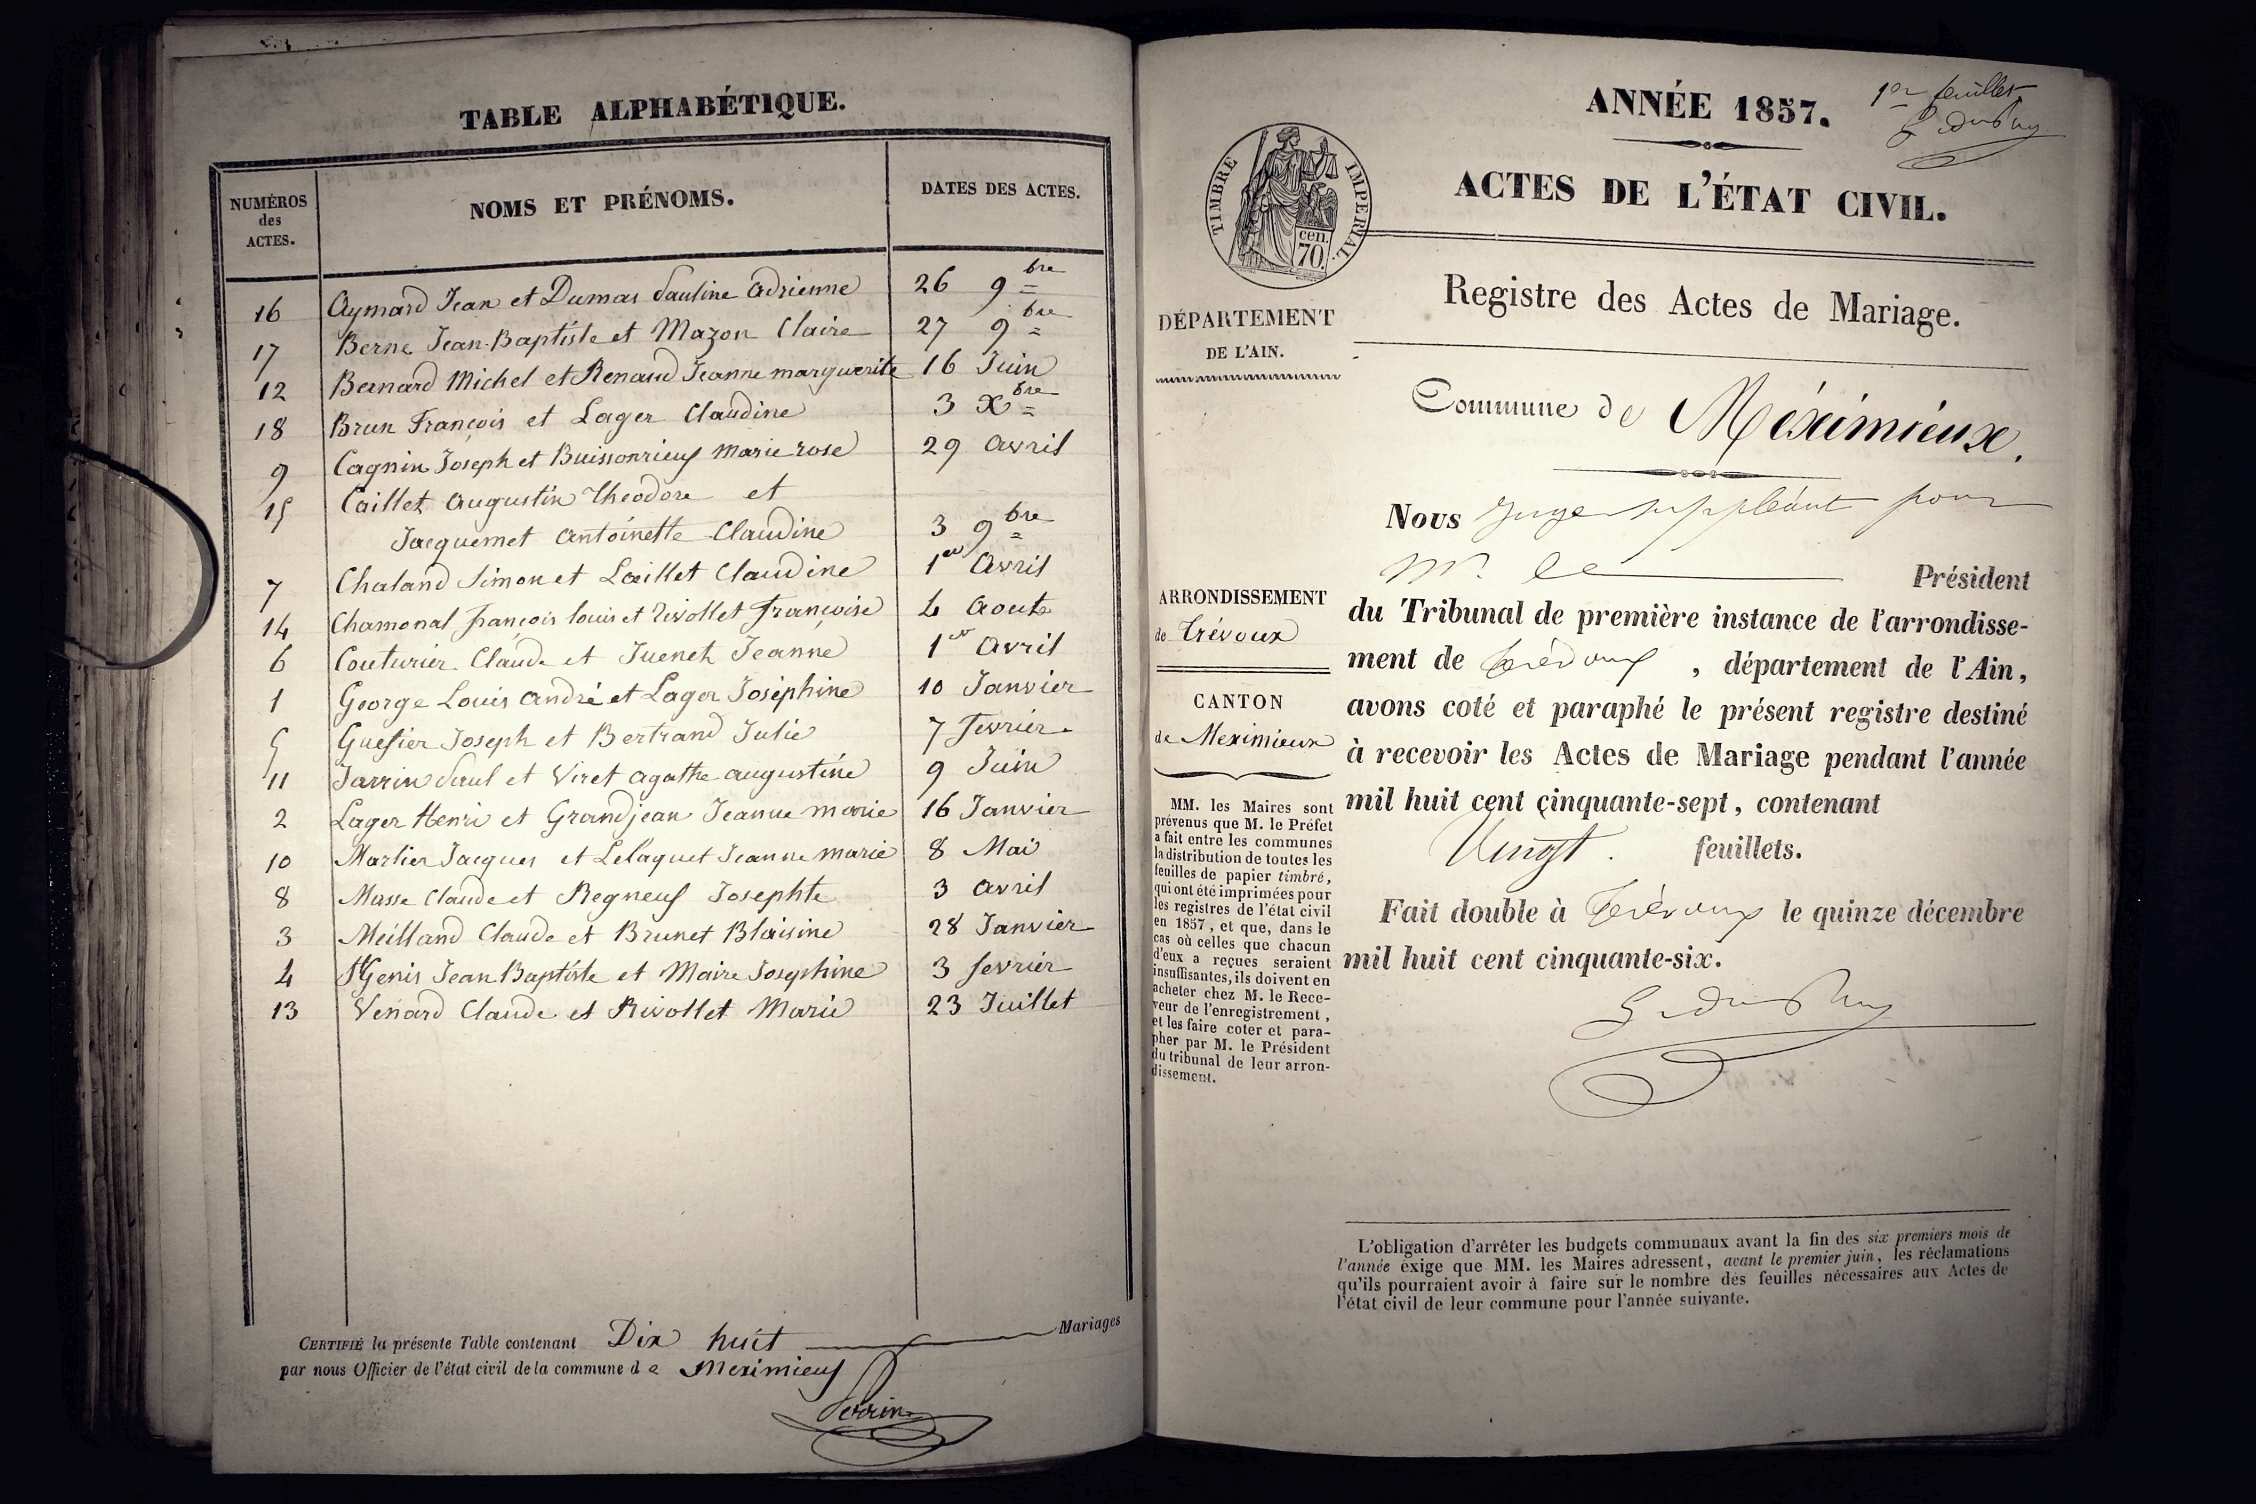 TABLE ALPHABÉTIQUE.
NUMÉROS des ACTES. NOMS ET PRÉNOMS. DATES DES ACTES.
16 Aymard Jean et Dumas Pauline Adrienne 26 9bre
17 Berne Jean-Baptiste et Mazon Claire 27 9bre
12 Bernard Michel et Renaud Jeanne marguerite 16 Juin
18 Brun François et Lager Claudine 3 Xbre
9 Cagnin Joseph et Buissonrieux Marie rose 29 Avril
15 Caillet Augustin Théodore et
Jacquemet Antoinette Claudine 3 9bre
7 Chaland Simon et Laillet Claudine 1er Avril
14 Chamonal françois louis et Rivollet Françoise 4 Aout
6 Couturier Claude et Juenet Jeanne 1er Avril
1 George Louis André et Lager Joséphine 10 Janvier
5 Guesier Joseph et Bertrand Julie 7 Fevrier
11 Jarrin Paul et Viret Agathe augustine 9 Juin
2 Lager Henri et Grandjean Jeanne marie 16 Janvier
10 Marlier Jacques et Lelaquet Jeanne marie 8 Mai
8 Masse Claude et Regneux Josephte 3 Avril
3 Meilland Claude et Brunet Blaisine 28 Janvier
4 St Genis Jean Baptiste et Maire Josephine 3 fevrier
13 Venard Claude et Rivollet Marie 23 Juillet
CERTIFIÉ la présente Table contenant Dix huit Mariages
par nous Officier de l'état civil de la commune de Meximieux
Perrin
1er feuillet
ANNÉE 1857.
TIMBRE IMPERIAL.
cen. 70
ACTES DE L'ÉTAT CIVIL.
Registre des Actes de Mariage.
DÉPARTEMENT
DE L'AIN.
Commune de Méximieux.
ARRONDISSEMENT
de Trévoux
CANTON
de Meximieux
MM. les Maires sont
prévenus que M. le Préfet
a fait entre les communes
la distribution de toutes les
feuilles de papier timbré,
qui ont été imprimées pour
les registres de l'état civil
en 1857, et que, dans le
cas où celles que chacun
d'eux a reçues seraient
insuffisantes, ils doivent en
acheter chez M. le Rece-
veur de l'enregistrement,
et les faire coter et para-
pher par M. le Président
du tribunal de leur arron-
dissement.
Nous Juge suppléant pour
Mr. le Président
du Tribunal de première instance de l'arrondisse-
ment de Trévoux, département de l'Ain,
avons coté et paraphé le présent registre destiné
à recevoir les Actes de Mariage pendant l'année
mil huit cent cinquante-sept, contenant
Vingt. feuillets.
Fait double à Trévoux le quinze décembre
mil huit cent cinquante-six.
L'obligation d'arrêter les budgets communaux avant la fin des six premiers mois de
l'année exige que MM. les Maires adressent, avant le premier juin, les réclamations
qu'ils pourraient avoir à faire sur le nombre des feuilles nécessaires aux Actes de
l'état civil de leur commune pour l'année suivante.